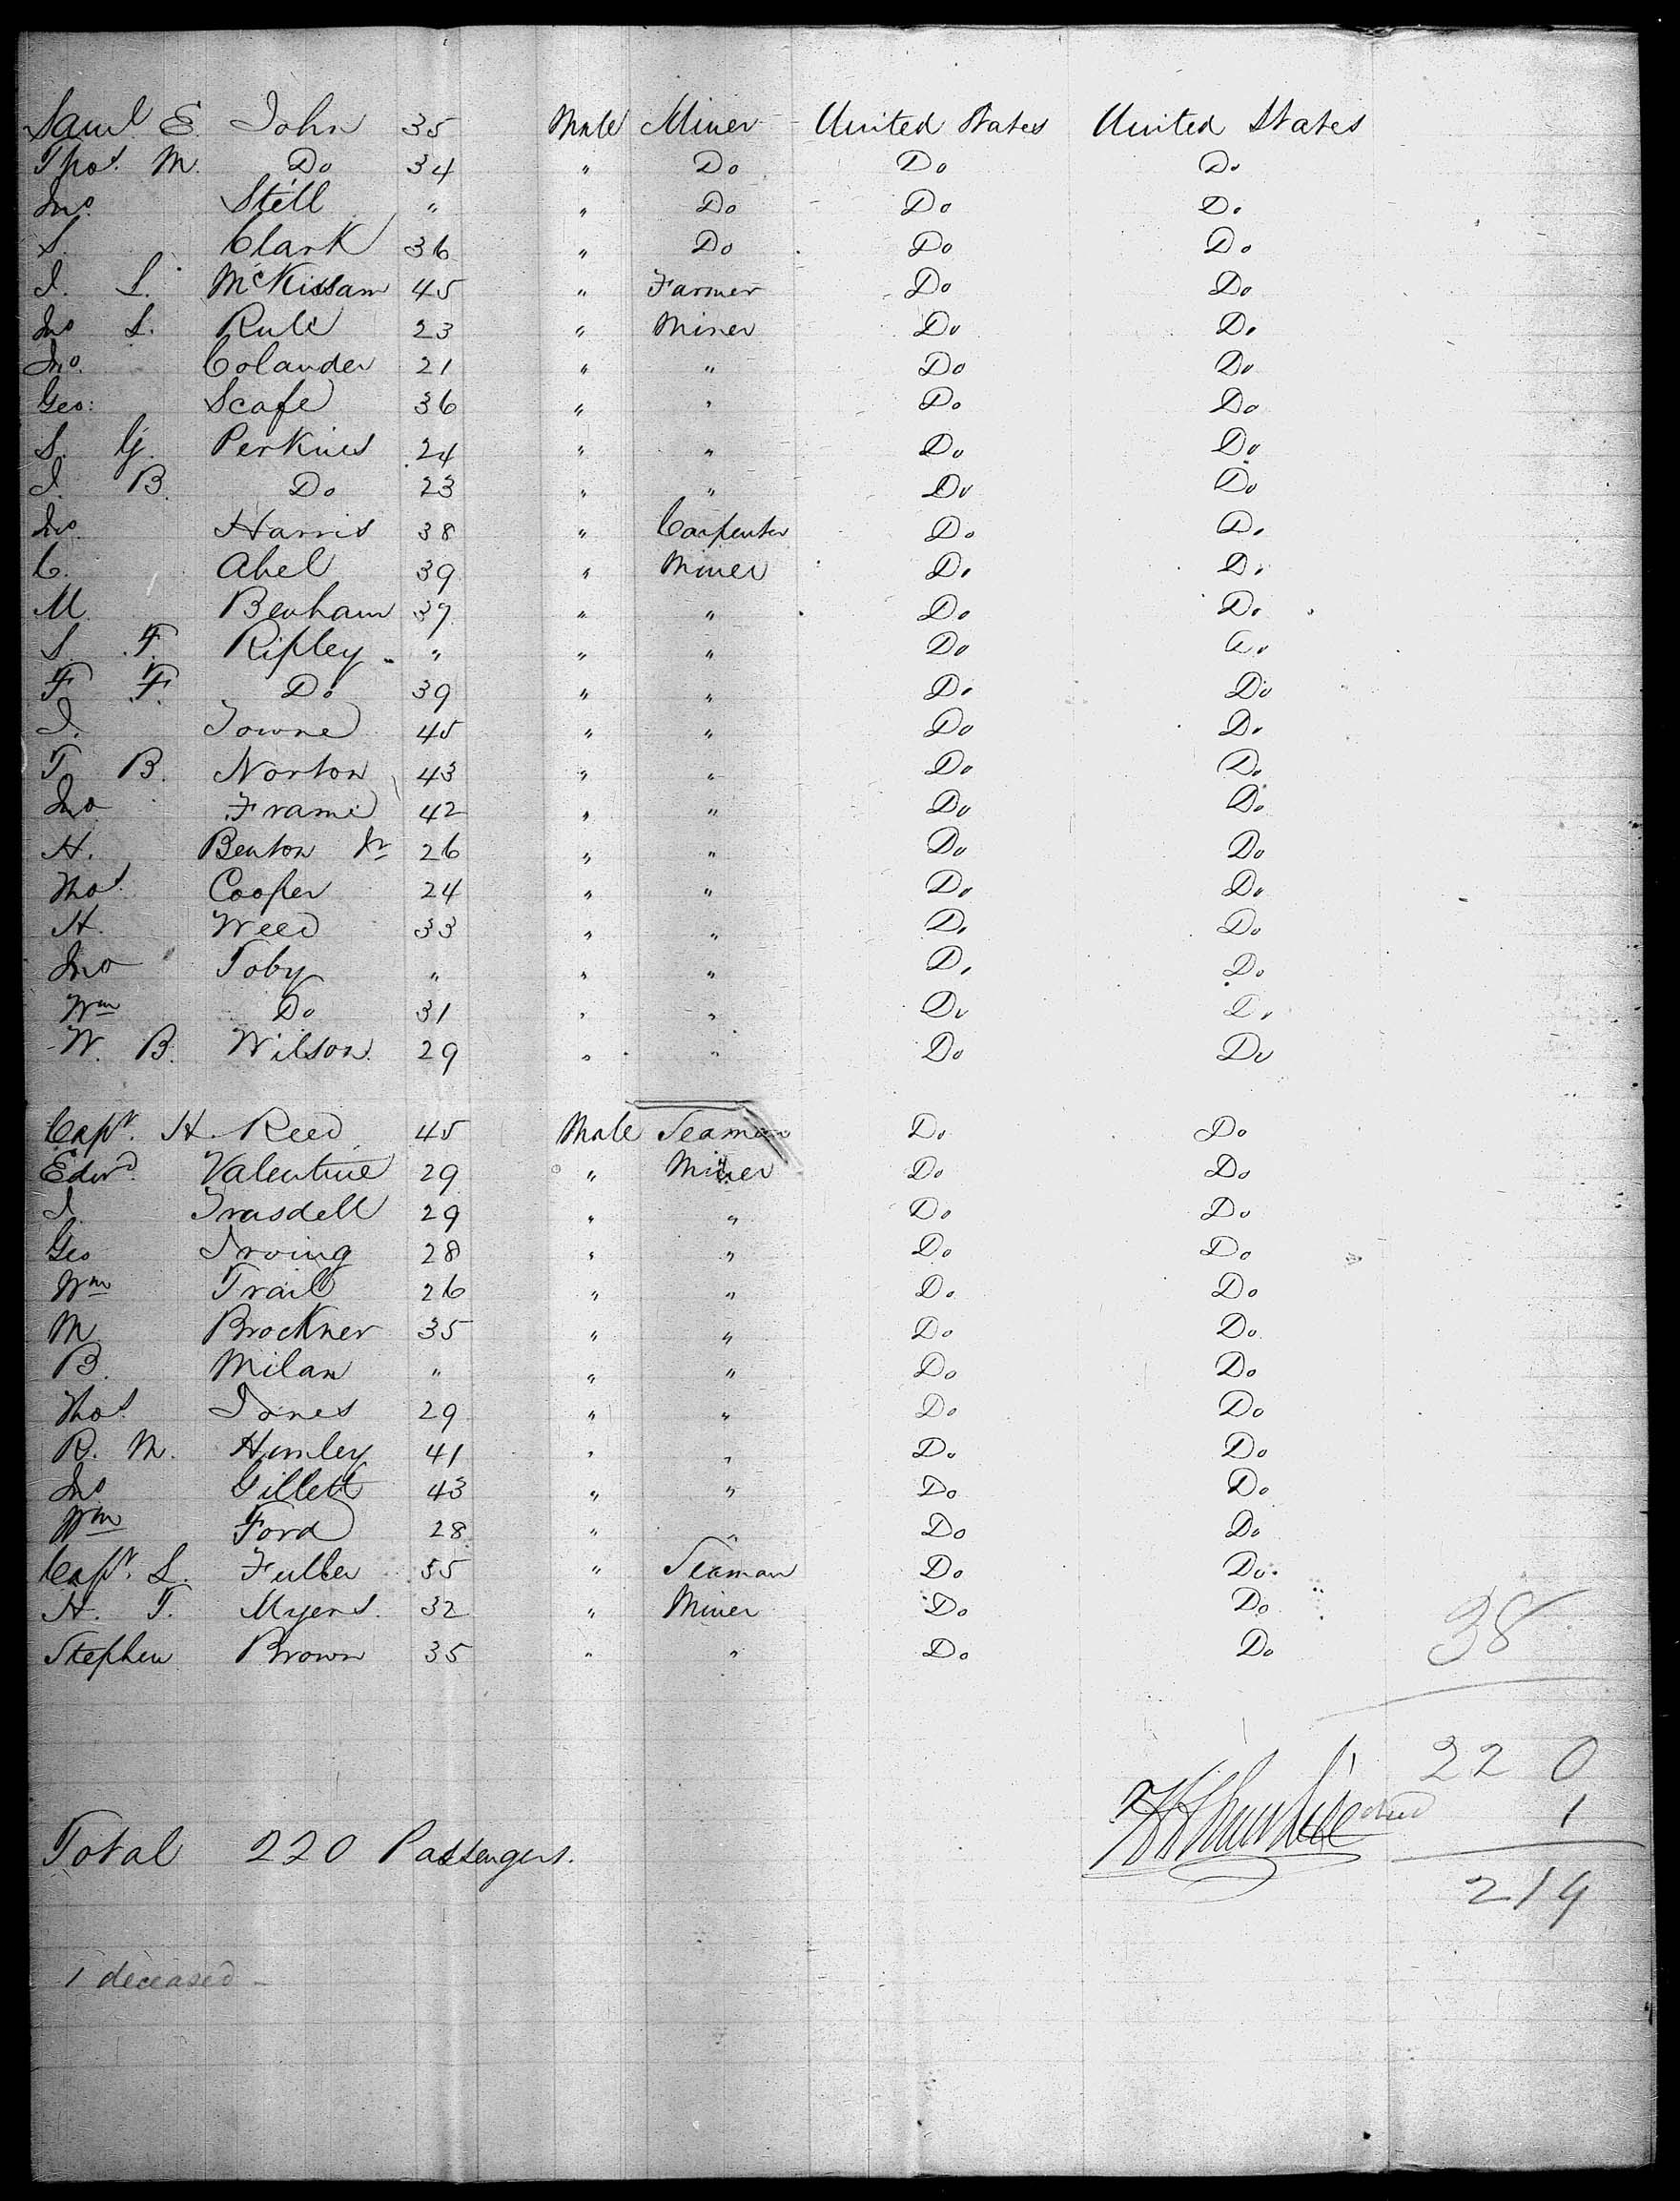 Saml E. John 35 Male Miner United States United States
Thos. M. Do 34 " Do Do Do
Jno. Still " " Do Do Do
S. Clark 36 " Do Do Do
J. L. McKissam 45 " Farmer Do Do
Jno L. Rule 23 " Miner Do Do
Jno. Colander 21 " " Do Do
Geo: Scafe 36 " " Do Do
S. G. Perkins 24 " " Do Do
J. B. Do 23 " " Do Do
Jno. Harris 38 " Carpenter Do Do
C. Abel 39 " Miner Do Do
M. Benham 37 " " Do Do
S. F. Ripley " " " Do Do
F. F. Do 39 " " Do Do
J. Towne 45 " " Do Do
T. B. Norton 43 " " Do Do
Jno Frame 42 " " Do Do
H. Benton Jr 26 " " Do Do
Thos. Cooper 24 " " Do Do
H. Weed 33 " " Do Do
Jno Toby " " " Do Do
Wm Do 31 " " Do Do
W. B. Wilson 29 " " Do Do
Capt. H. Reed 45 Male Seaman Do Do
Edwd. Valentine 29 " Miner Do Do
J. Trasdell 29 " " Do Do
Geo Irving 28 " " Do Do
Wm Trail 26 " " Do Do
M Brockner 35 " " Do Do
B. Milan " " " Do Do
Thos. Jones 29 " " Do Do
R. M. Humley 41 " " Do Do
Jno Gillett 43 " " Do Do
Wm Ford 28 " " Do Do
Capt. L. Fuller 35 " Seaman Do Do
H. T. Myers 32 " Miner Do Do
Stephen Brown 35 " " Do Do
38
220
died 1
219
Total 220 Passengers.
1 deceased